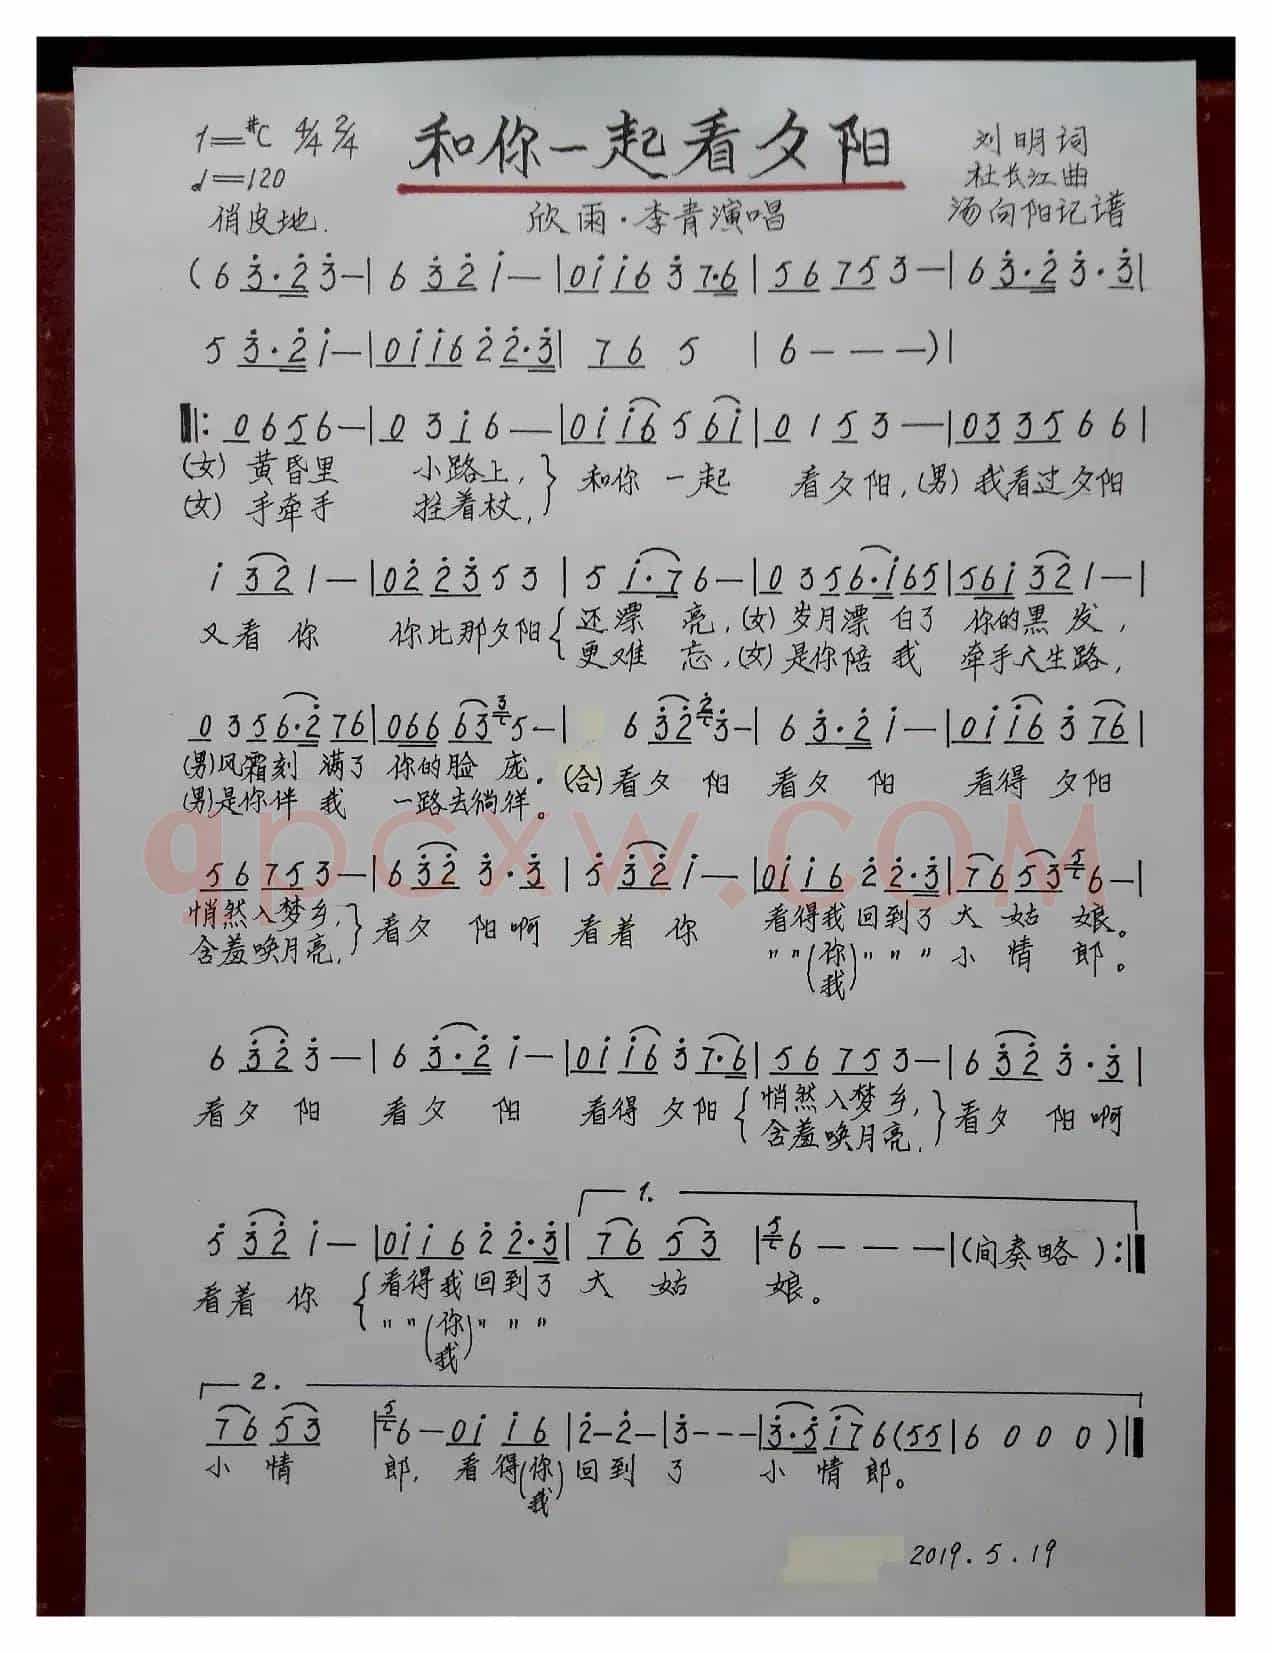 1=#C 4/4 2/4
和你一起看夕阳
刘明词
♩=120
杜长江曲
俏皮地.
欣雨·李青演唱
汤向阳记谱
(6 3̇·2̇ 3̇—|6 3̇2̇ i—|0i i6 3̇ 7·6|56 75 3—|6 3̇·2̇ 3̇·3̇|
5 3̇·2̇ i—|0i i6 2̇ 2̇·3̇|76 5|6———)|
‖:0 6 5 6—|0 3 i 6—|0i i6 5 6i|0 1 5 3—|03 35 6 6|
(女)黄昏里 小路上,}和你一起 看夕阳,(男)我看过夕阳
(女)手牵手 拄着杖,
i 32 1—|02̇ 2̇3̇ 5 3|5 i·7 6—|0 3 56·i 65|56i 32 1—|
又看你 你比那夕阳{还漂亮,(女)岁月漂白了 你的黑发,
更难忘,(女)是你陪我 牵手人生路,
0 3 56·2̇ 76|066 63̇ 5—|6 3̇2̇ 3̇—|6 3̇·2̇ i—|0i i6 3̇ 76|
(男)风霜刻满了 你的脸庞。(合)看夕阳 看夕阳 看得夕阳
(男)是你伴我 一路去徜徉。
56 75 3—|6 3̇2̇ 3̇·3̇|5̇ 3̇2̇ i—|0i i6 2̇ 2̇·3̇|76 53 6—|
悄然入梦乡,}看夕阳啊 看着你 看得我回到了大姑娘。
含羞唤月亮, ""(你)"""小情郎。
我
6 3̇2̇ 3̇—|6 3̇·2̇ i—|0i i6 3̇ 7·6|56 75 3—|6 3̇2̇ 3̇·3̇|
看夕阳 看夕阳 看得夕阳{悄然入梦乡,}看夕阳啊
含羞唤月亮.
1.
5̇ 3̇2̇ i—|0i i6 2̇ 2̇·3̇|76 53|6———|(间奏略):‖
看着你{看得我回到了大姑娘。
""(你)"""
我
2.
76 53|6—0i i6|2̇—2̇—|3̇———|3̇·5̇ i7 6(55|6 0 0 0)‖
小情郎,看得(你)回到了 小情郎。
我
2019.5.19
qpcxw.com